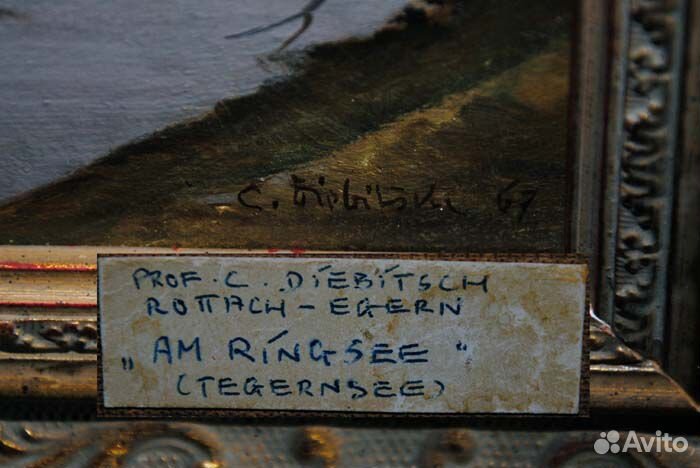 C. Diebitsch 67
PROF. C. DIEBITSCH
ROTTACH - EGERN
„AM RINGSEE“
(TEGERNSEE)
Avito